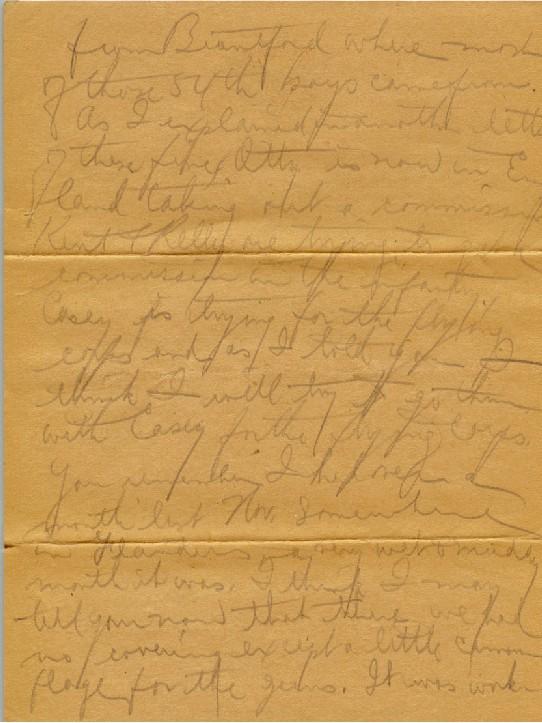 from Brantford where most
of those 54th boys came from.
As I explained in another lette
of these five Otty is now in En
gland taking out a commissi
Kent & Kelly are trying to get
commission in the infantry
Casey is trying for the flying
corps and as I told you I
think I will try to go then
with Casey for the Flying Corps.
You remember I
month last Nov. Somewhere
in Flanders, a very wet & muddy
month it was. I think I may
tell you now that there we had
no covering except a little camou
flage for the guns. It was